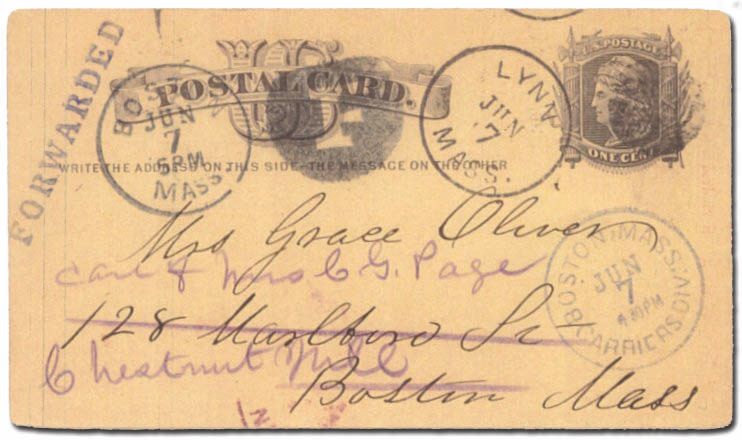 FORWARDED
US
POSTAL CARD.
WRITE THE ADDRESS ON THIS SIDE–THE MESSAGE ON THE OTHER
U.S. POSTAGE
ONE CENT
BOSTON
JUN
7
5PM
MASS
LYNN
JUN
7
MASS.
BOSTON, MASS.
JUN
7
4 30PM
CARRIERS DIV
Mrs Grace Oliver
care of Mrs C G. Page
128 Marlboro St
Chestnut Hill
Boston Mass